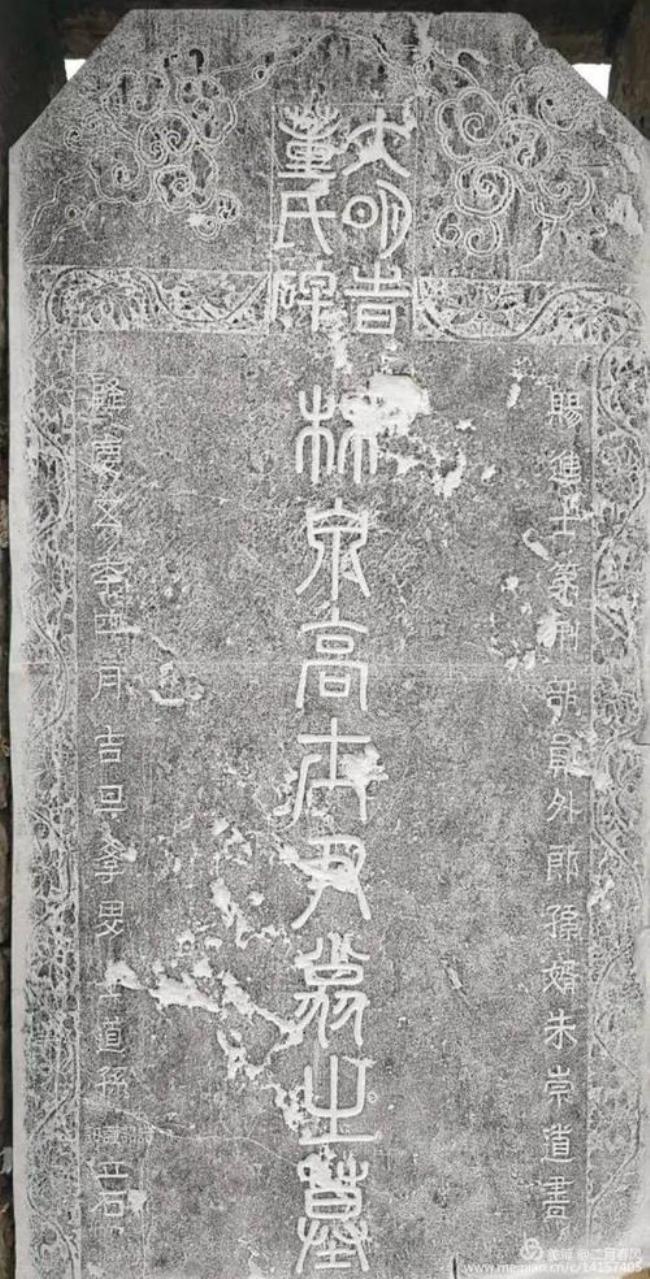 大明
董氏碑
賜進士第刑部員外郎孫婿朱崇道書
林泉高 尹翁之墓
隆慶五年四月吉旦孝男 道 立石
美篇 @二月春风
www.meipian.cn/c/14157405